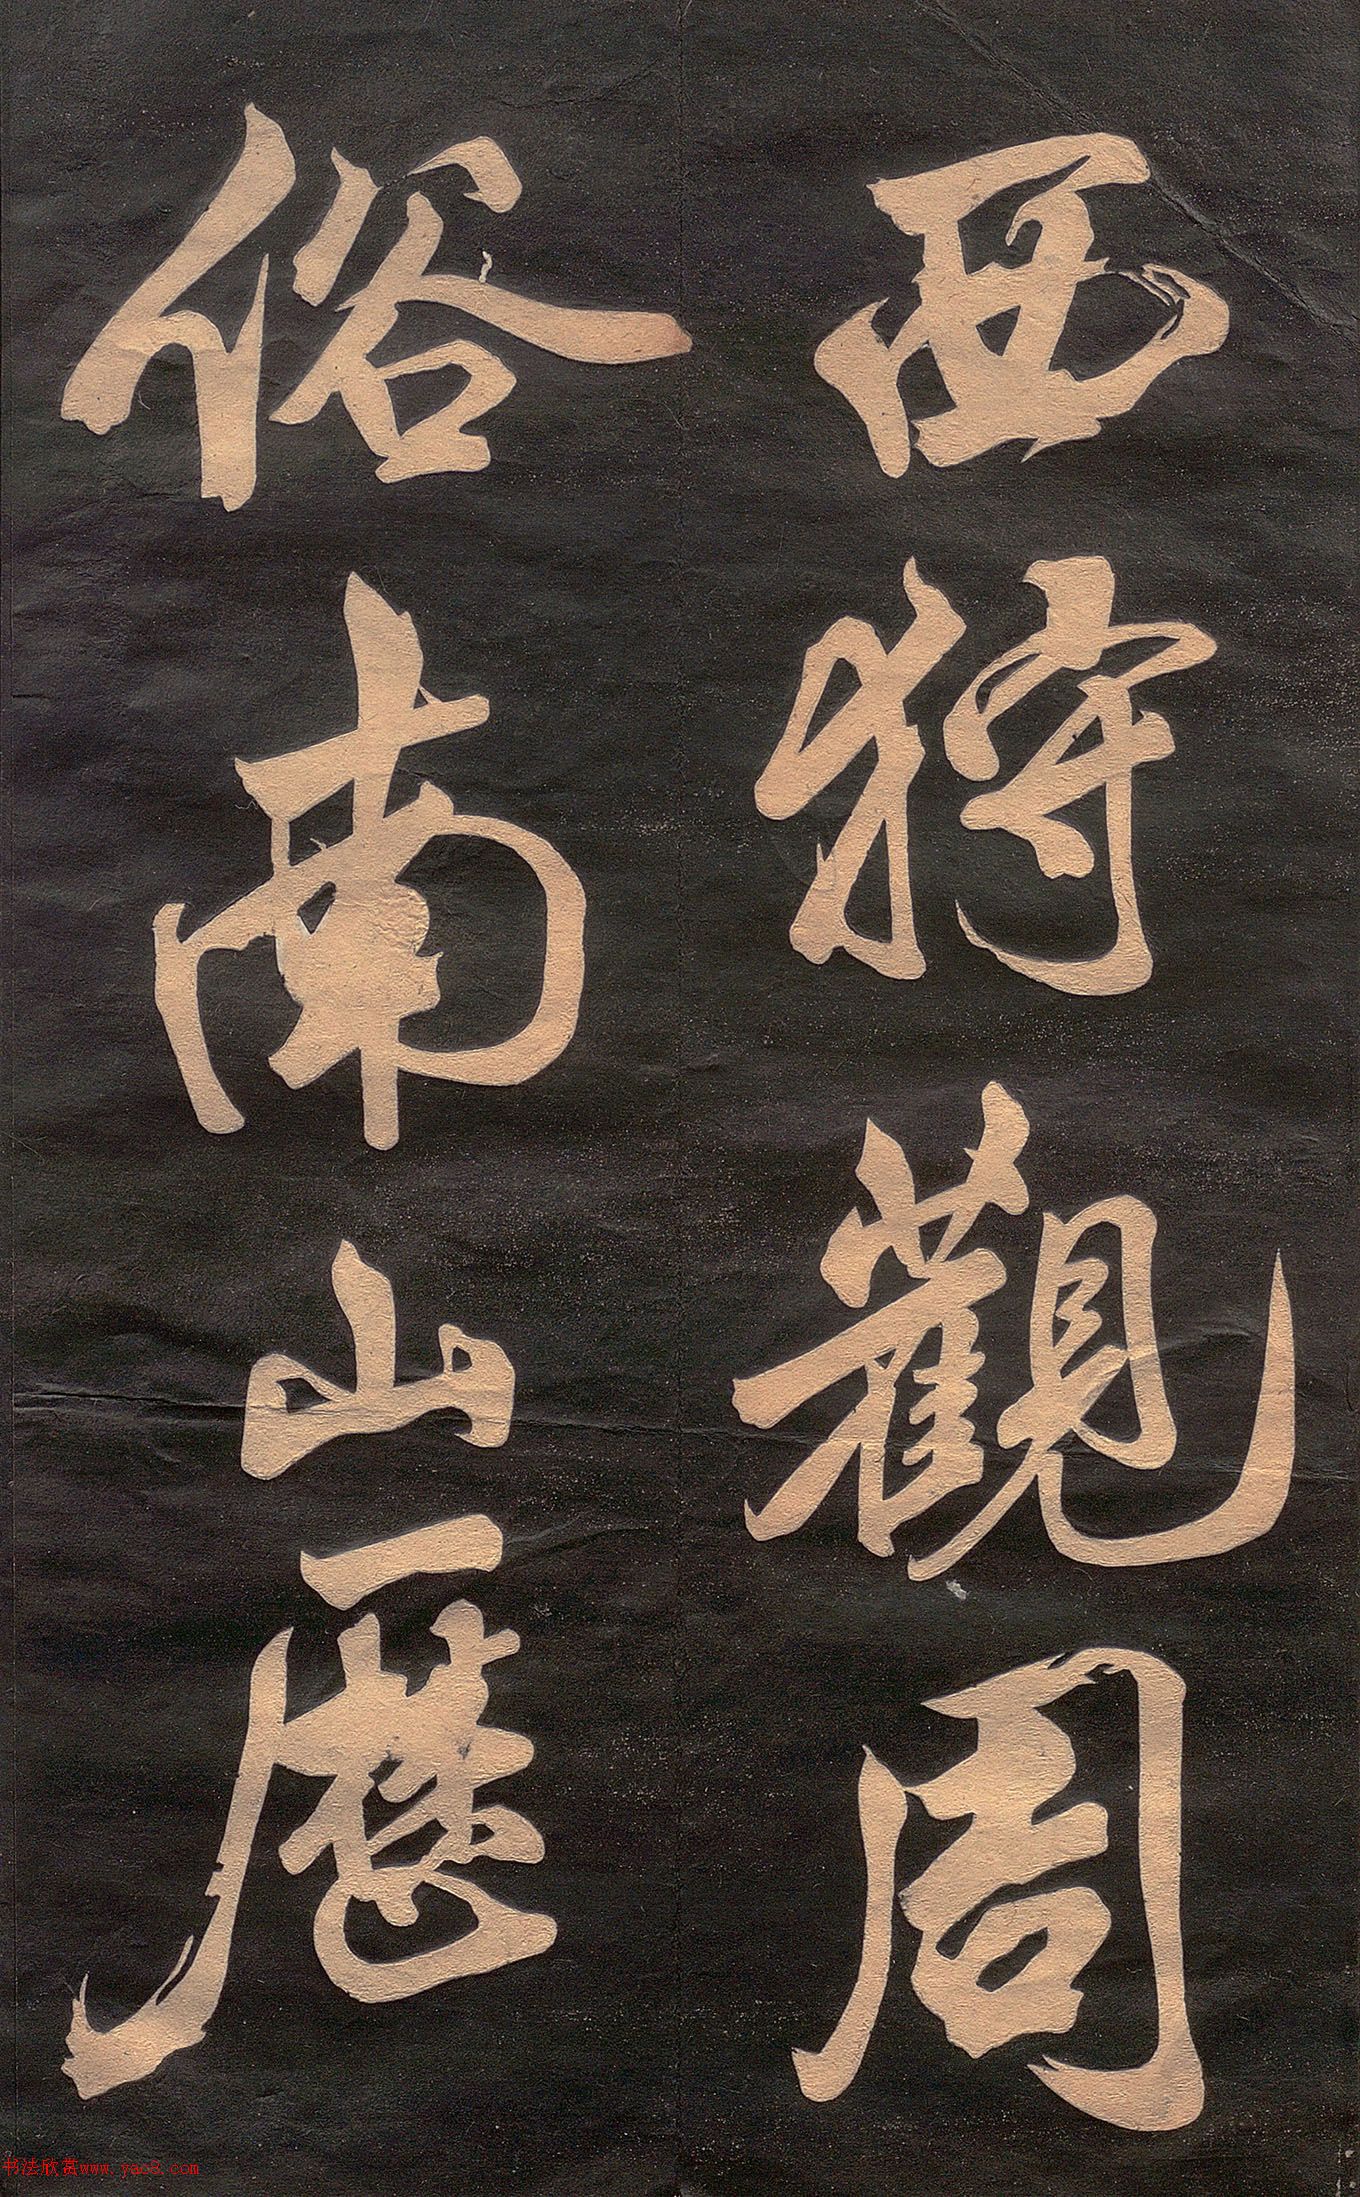 西狩觀周
俗南山歷
书法欣赏www.yac8.com